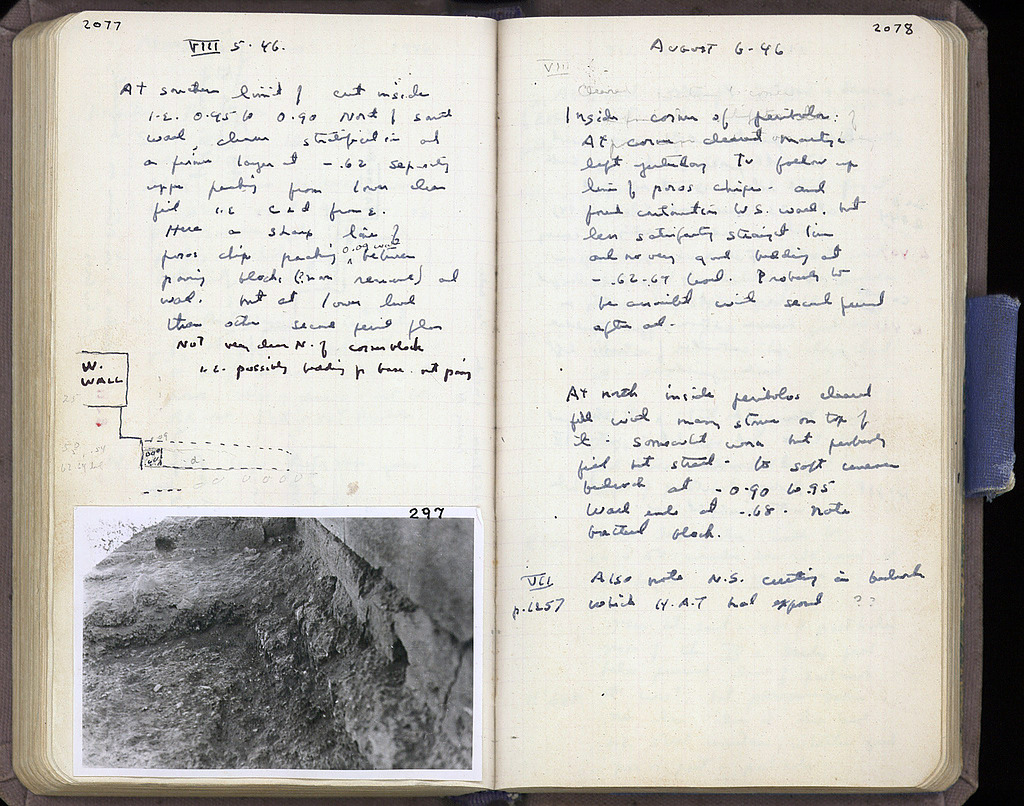 2077
VIII 5-46.
At southern limit of cut inside
i.e. 0.95 to 0.90 North of south
wall, clear stratification and
a firm layer at -.62 separating
upper packing from lower clean
fill i.e. c and d from E.
Here a sharp line of
poros chip packing 0.09 wide between
paving blocks (now removed) and
wall. but at lower level
than other second period floor
Not very clear N. of corner block
i.e. possibly bedding for base not paving
W.
WALL
d.
297
2078
August 6-46
VIII
Cleared
Inside corner of peribolos:
At corner cleared
left yesterday to follow up
line of poros chips - and
found continuation W.S. wall, but
less satisfactory straight line
and no very good bedding at
-.62-.67 level. Probably to
be associated with second period
after all.
At north inside peribolos cleared
fill with many stones on top of
it - somewhat worn but
to soft
bedrock at -0.90 to .95
Wall ends at -.68. Note
block.
VII Also note N.S. cutting in bedrock
p.1257 which H.A.T had exposed ??